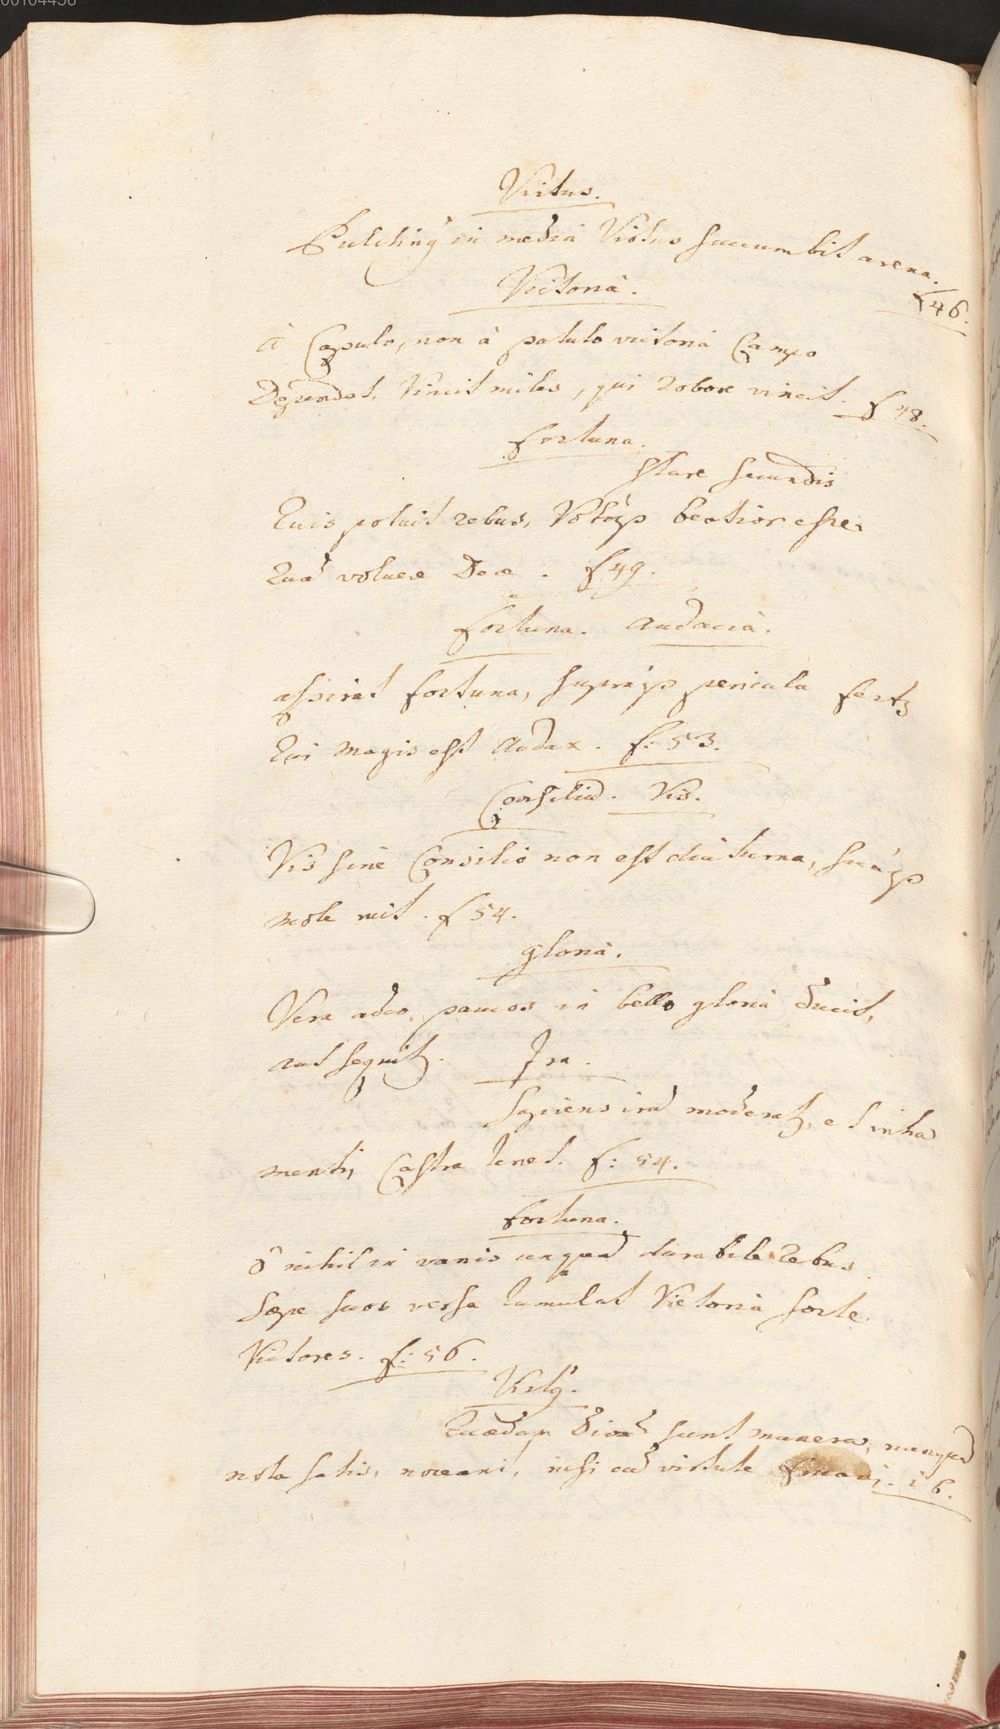 00104436
Virtus.
Pulchriꝰ in mediâ Virtus succumbit arena.
f 46.
Victoria.
à Capulo, non à patulo victoria Campo
Dependet, Vincit miles, qui robore vincit. f 48.
fortuna.
stare secundis
Quis potuit rebus, Votisqꝫ beatior esse
Quā voluere Deae. f 49.
fortuna. Audacia.
aspirat fortuna, supraqꝫ pericula fertꝫ
Qui magis est Audax. f: 53.
Consiliū. Vis.
Vis sine Consilio non est diuturna, suâqꝫ
mole ruit. f 54.
gloria.
Vera adeo paucos in bello gloria ducit,
aut sequitꝫ. Ira.
Sapiens irā moderatꝫ, et intra
mentis Castra tenet. f: 54.
fortuna.
ô nihil in vanis unquā durabile rebus
Saepe suos versa tumulat Victoria sorte
Victores. f: 56.
Quaedam sunt munera, nunquā
nota satis, noceant, nisi cū virtute